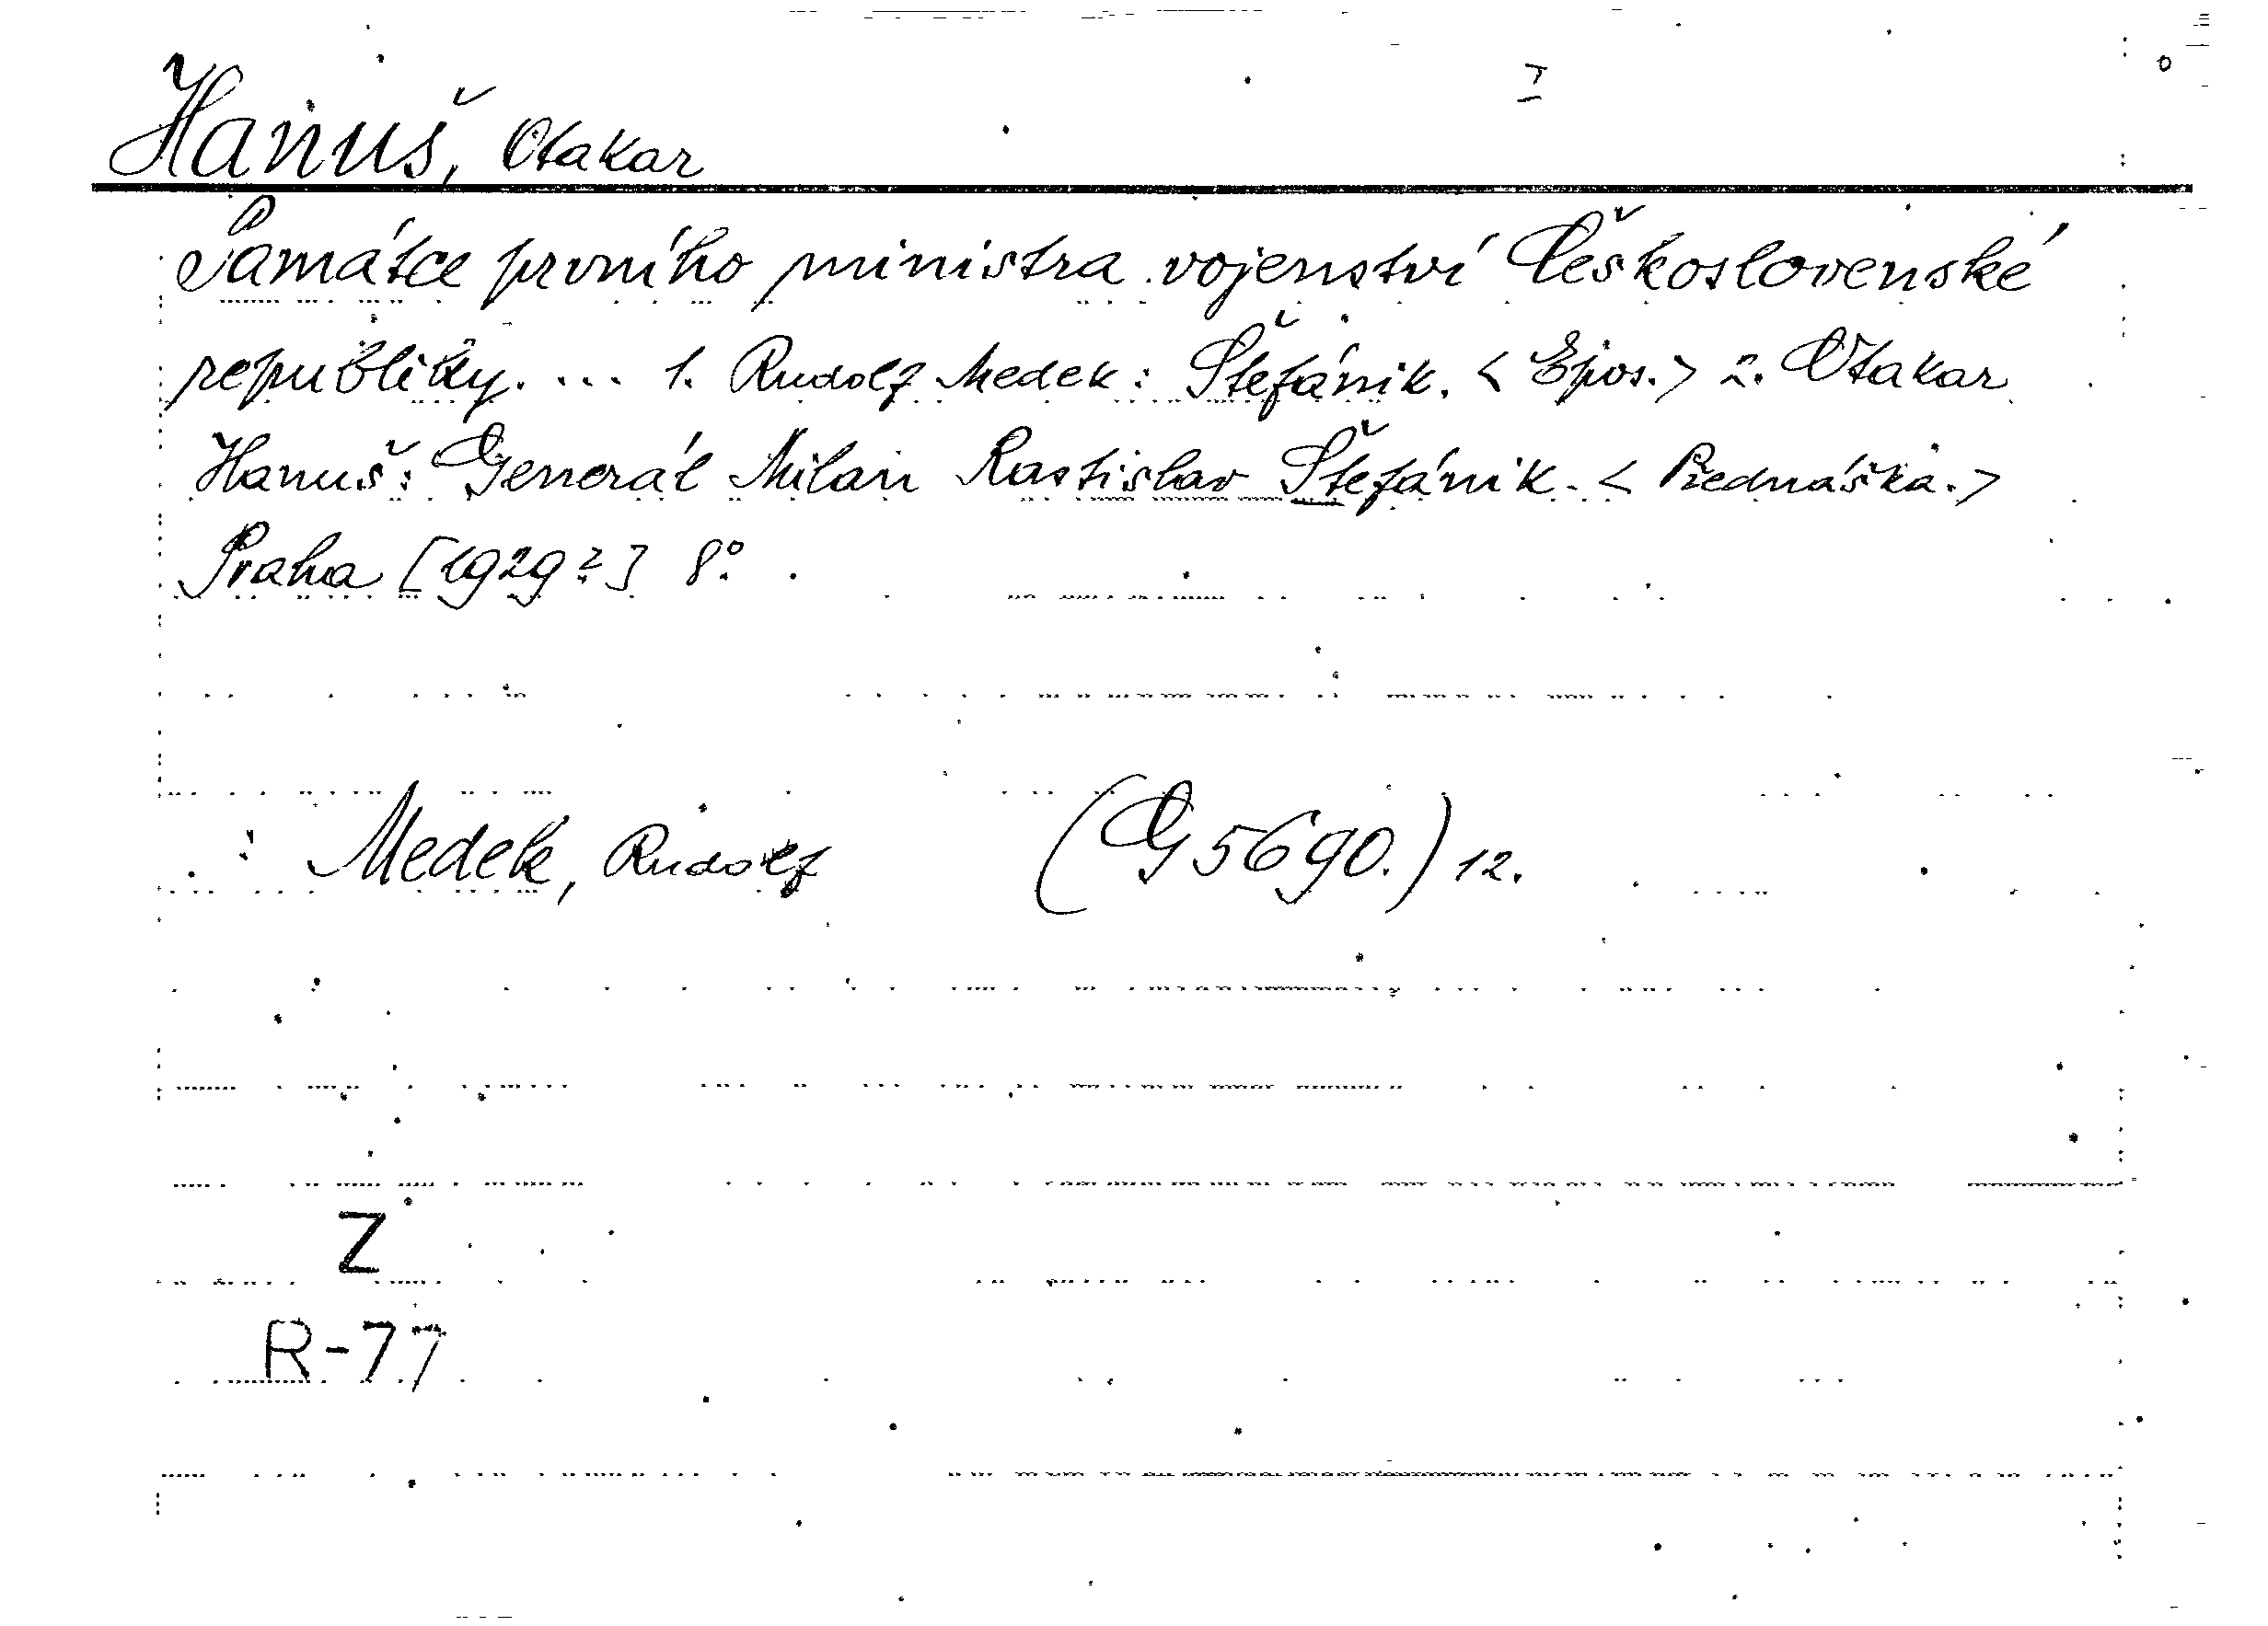 I
Hanuš, Otakar
Památce prvního ministra vojenství Československé
republiky. ... 1. Rudolf Medek: Štefánik. < Epos. > 2. Otakar
Hanuš: Generál Milan Rastislav Štefánik. < Přednáška. >
Praha [1929?] 8°.
: Medek, Rudolf (G 5690.) 12.
Z
R-77